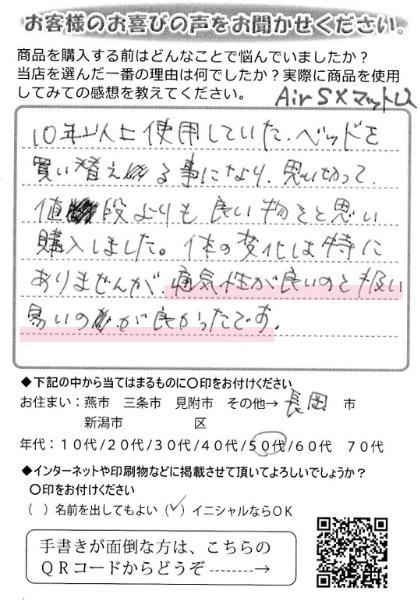 お客様のお喜びの声をお聞かせください。
商品を購入する前はどんなことで悩んでいましたか？
当店を選んだ一番の理由は何でしたか？実際に商品を使用
してみての感想を教えてください。
AirSXマットレス
10年以上使用していた、ベッドを
買い替える事になり、思いきって、
値段よりも良い物をと思い
購入しました。体の変化は特に
ありませんが、通気性が良いのと扱い
易いのが良かったです。
◆下記の中から当てはまるものに〇印をお付けください
お住まい：燕市 三条市 見附市 その他→ 長岡 市
新潟市 区
年代：10代/20代/30代/40代/50代/60代 70代
◆インターネットや印刷物などに掲載させて頂いてよろしいでしょうか？
〇印をお付けください
（ ）名前を出してもよい（✓）イニシャルならOK
手書きが面倒な方は、こちらの
QRコードからどうぞ--------→